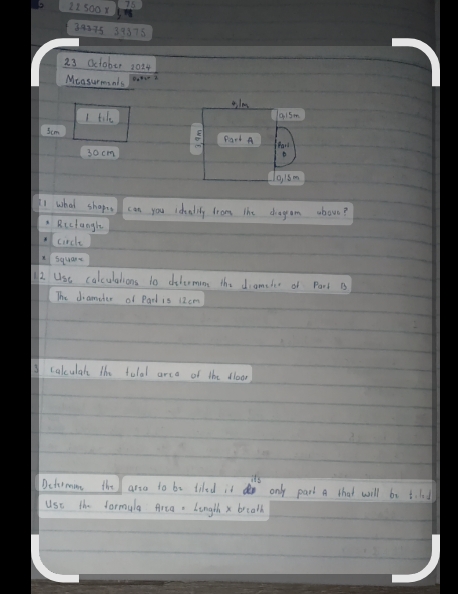 22 500 x 75
39375 39375
23 October 2024
Measurments
1 tile
30cm
Part A
0,15m
Part B
0,15m
1.1 What shapes can you identify from the diagram above?
• Rectangle
• Circle
• Square
1.2 Use calculations to determine the diameter of Part B
The diameter of Part is 12cm
3 Calculate the total area of the floor
Determine the area to be tiled if its only part A that will be tiled
Use the formula Area = Length x breath